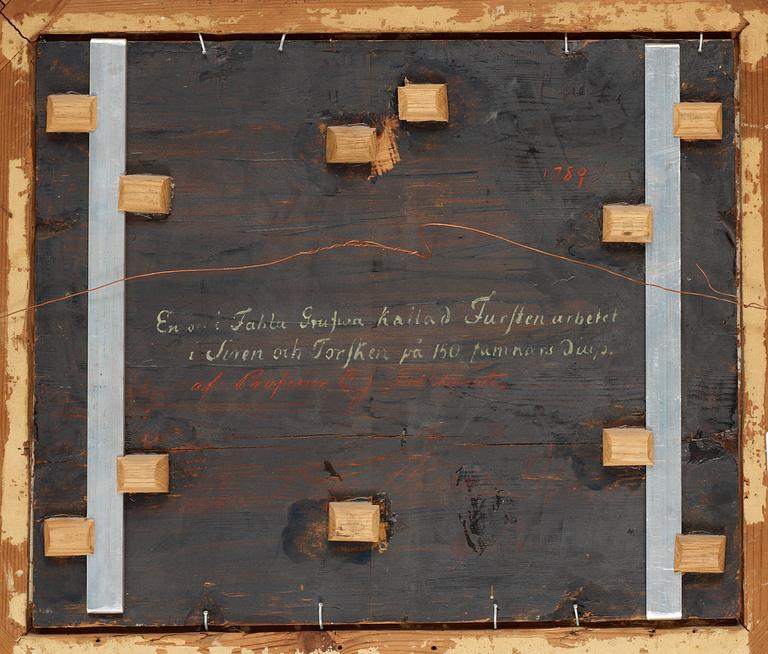 1789
En ort i Fahlu Grufwa kallad Fursten arbetet
i Siren och Torsken på 150 famnars Diup.
af Professor